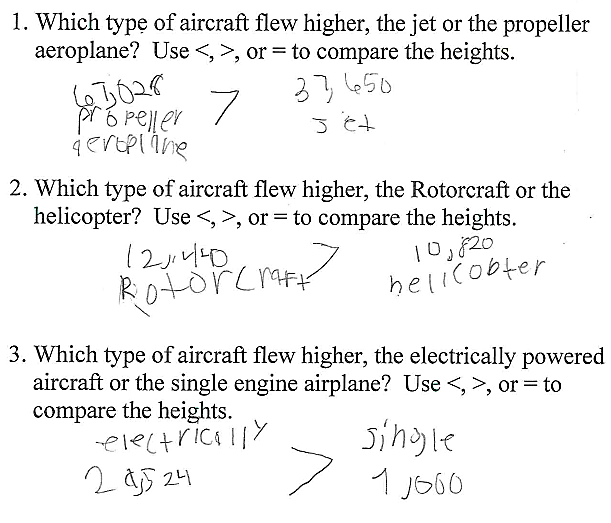 1. Which type of aircraft flew higher, the jet or the propeller
aeroplane? Use <, >, or = to compare the heights.
67,028 > 37,650
propeller jet
aeroplane
2. Which type of aircraft flew higher, the Rotorcraft or the
helicopter? Use <, >, or = to compare the heights.
12,440 > 10,820
Rotorcraft helicobter
3. Which type of aircraft flew higher, the electrically powered
aircraft or the single engine airplane? Use <, >, or = to
compare the heights.
electrically single
> 1,000